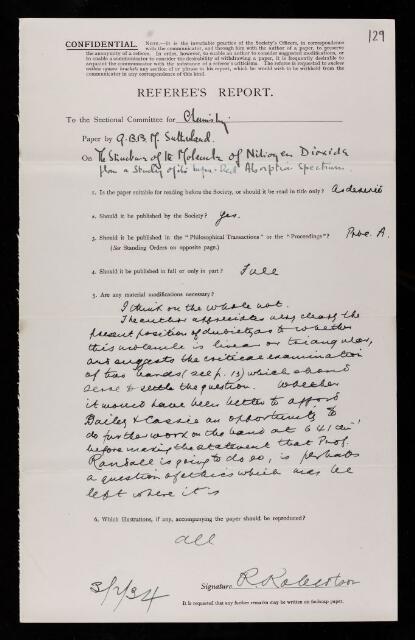 129
CONFIDENTIAL.
NOTE.—It is the invariable practice of the Society's Officers, in correspondence
with the communicator, and through him with the author of a paper, to preserve
the anonymity of a referee. In order, however, to enable an author to consider suggested modifications, or
to enable a communicator to consider the desirability of withdrawing a paper, it is frequently desirable to
acquaint the communicator with the substance of a referee's criticisms. The referee is requested to enclose
within square brackets any section of or phrase in his report, which he would wish to be withheld from the
communicator in any correspondence of this kind.
REFEREE'S REPORT.
To the Sectional Committee for Chemistry
Paper by G.B.B.M. Sutherland.
On The Structure of the Molecule of Nitrogen Dioxide
from a Study of its Infra-Red Absorption Spectrum.
1. Is the paper suitable for reading before the Society, or should it be read in title only? As desired
2. Should it be published by the Society? Yes.
3. Should it be published in the "Philosophical Transactions" or the "Proceedings"? Proc. A.
(See Standing Orders on opposite page.)
4. Should it be published in full or only in part? Full
5. Are any material modifications necessary?
I think on the whole not.
The author appreciates very clearly the
present position of dubiety as to whether
this molecule is linear or triangular,
and suggests the critical examination
of two bands (see p. 13) which should
serve to settle the question. Whether
it would have been better to afford
Bailey & Cassie an opportunity to
do further work on the band at 641 cm-1
before making the statement that Prof.
Randall is going to do so, is perhaps
a question of ethics which may be
left where it is
6. Which illustrations, if any, accompanying the paper should be reproduced?
all
3/2/34
Signature R Robertson
It is requested that any further remarks may be written on foolscap paper.